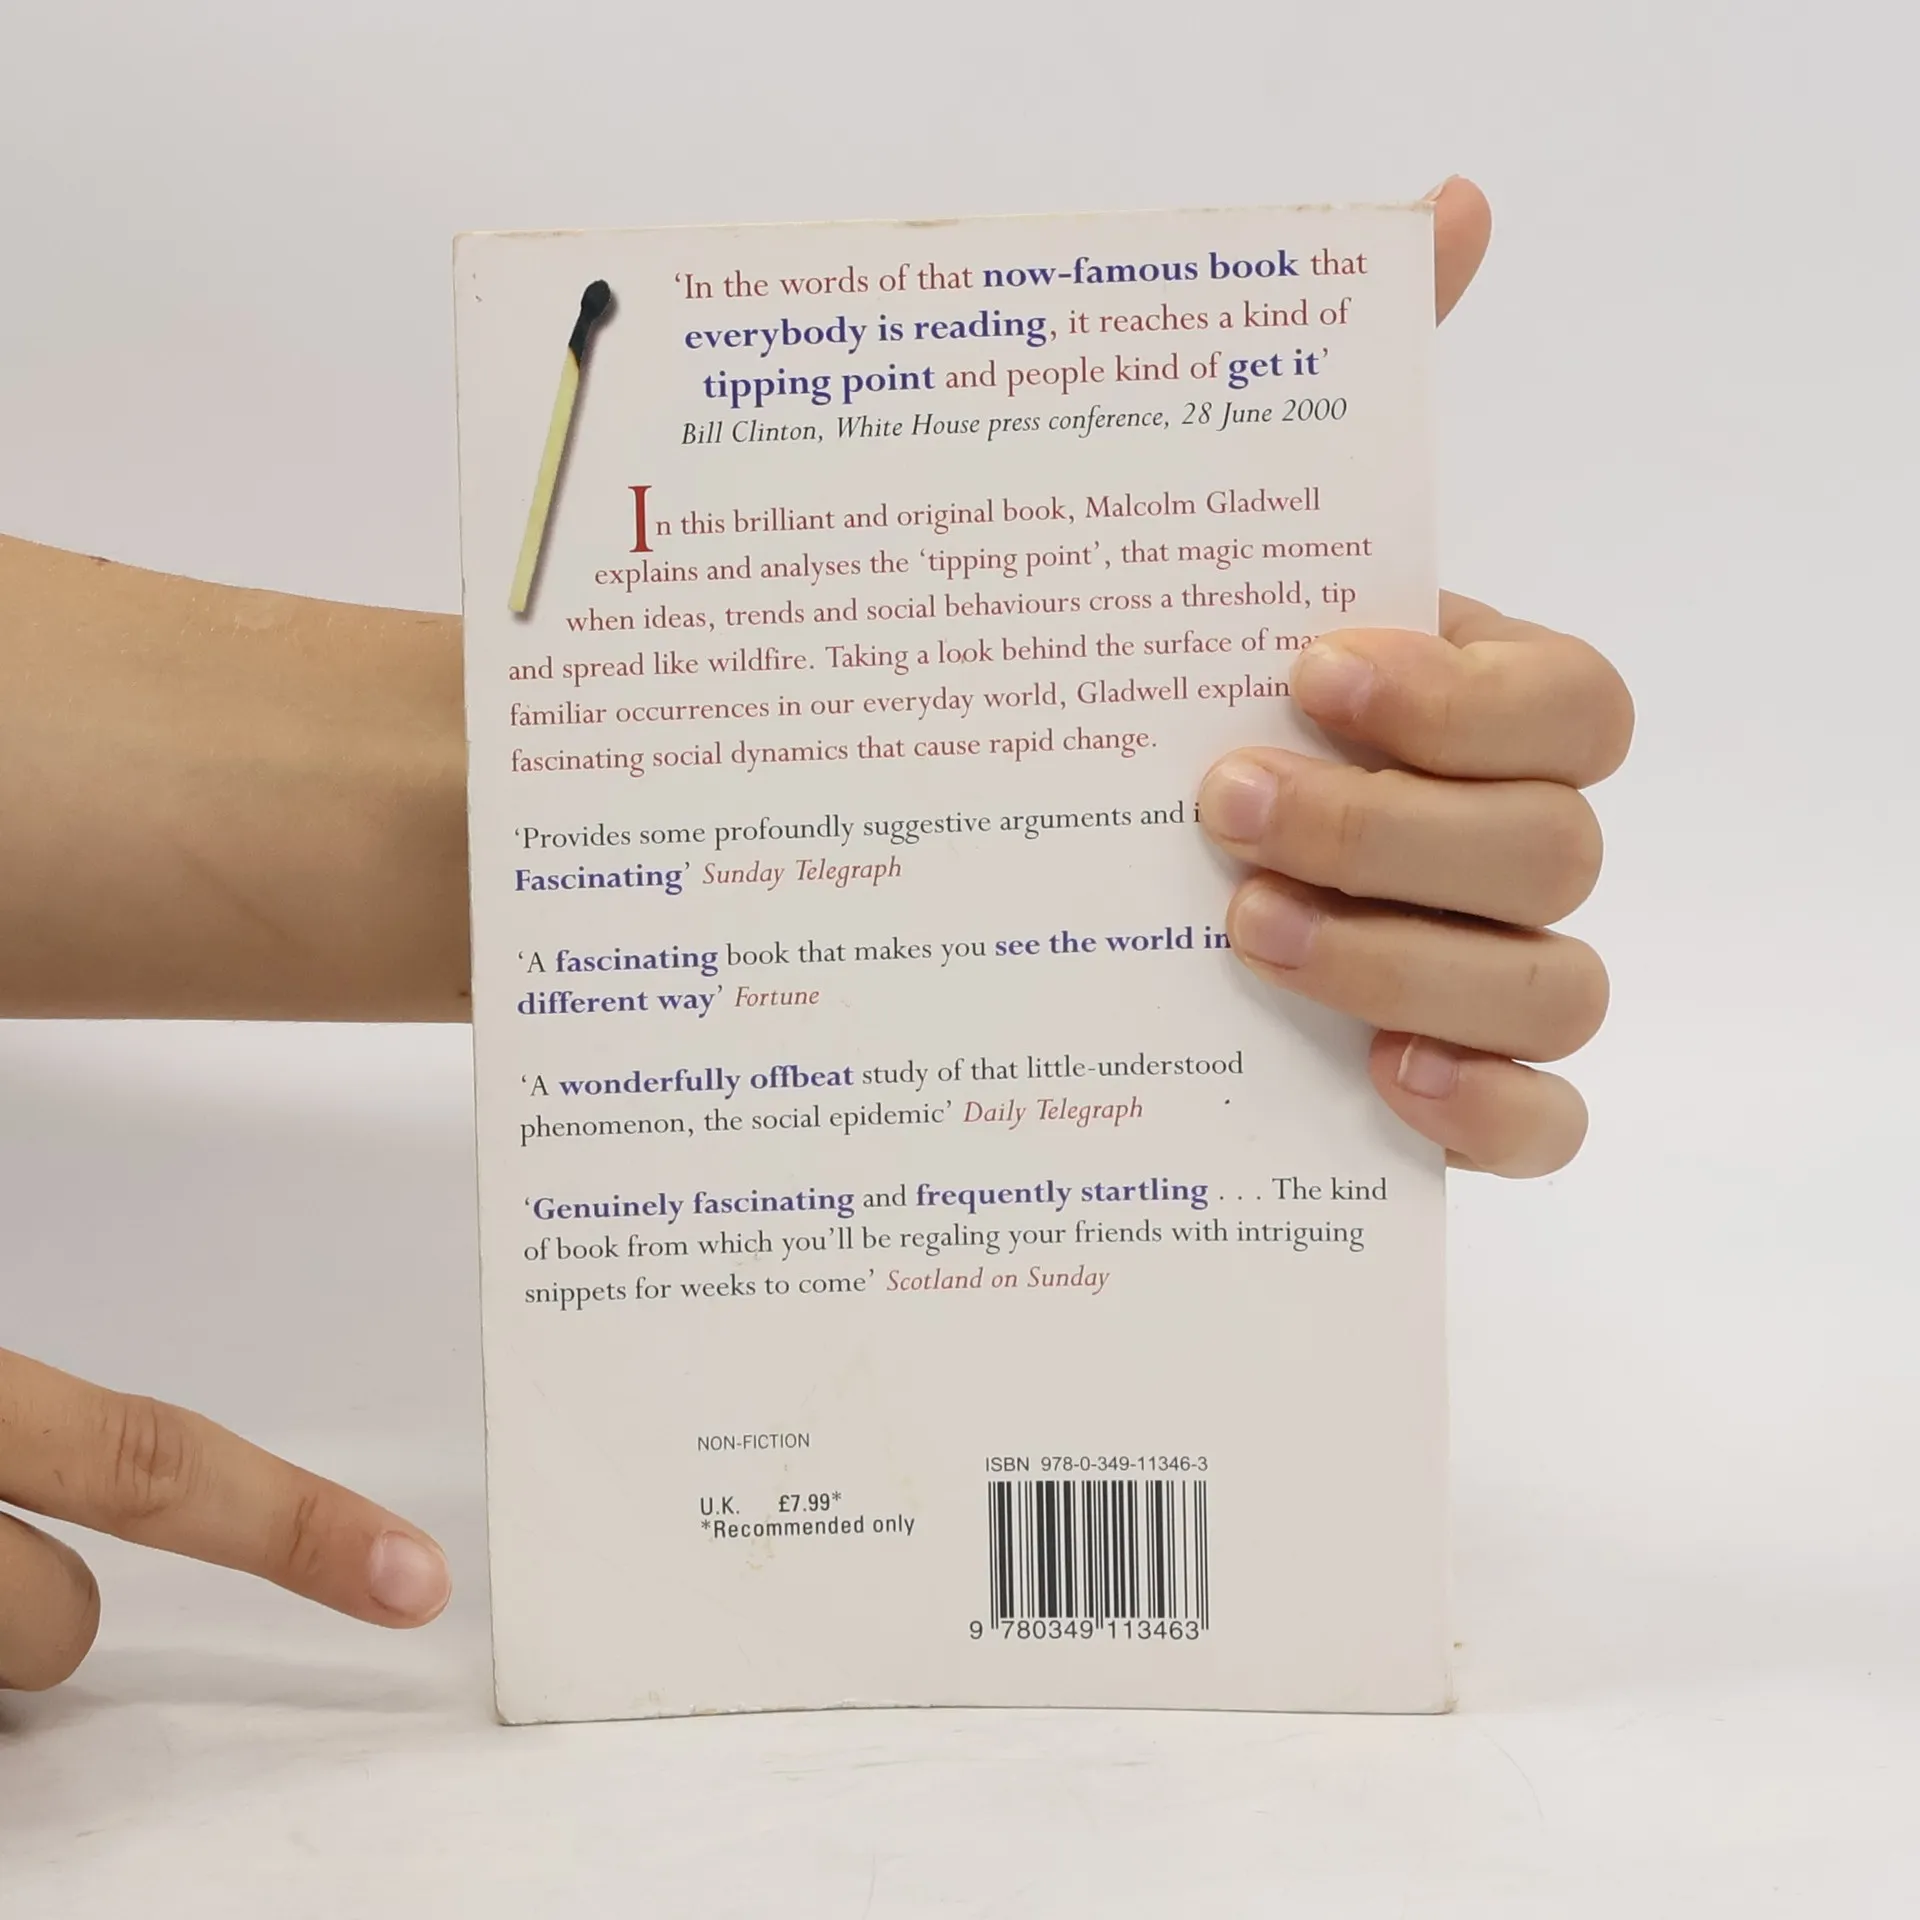 ‘In the words of that now-famous book that
everybody is reading, it reaches a kind of
tipping point and people kind of get it’
Bill Clinton, White House press conference, 28 June 2000
In this brilliant and original book, Malcolm Gladwell
explains and analyses the ‘tipping point’, that magic moment
when ideas, trends and social behaviours cross a threshold, tip
and spread like wildfire. Taking a look behind the surface of
familiar occurrences in our everyday world, Gladwell explain
fascinating social dynamics that cause rapid change.
‘Provides some profoundly suggestive arguments and
Fascinating’ Sunday Telegraph
‘A fascinating book that makes you see the world in
different way’ Fortune
‘A wonderfully offbeat study of that little-understood
phenomenon, the social epidemic’ Daily Telegraph
‘Genuinely fascinating and frequently startling . . . The kind
of book from which you’ll be regaling your friends with intriguing
snippets for weeks to come’ Scotland on Sunday
NON-FICTION
U.K. £7.99*
*Recommended only
ISBN 978-0-349-11346-3
9 780349 113463